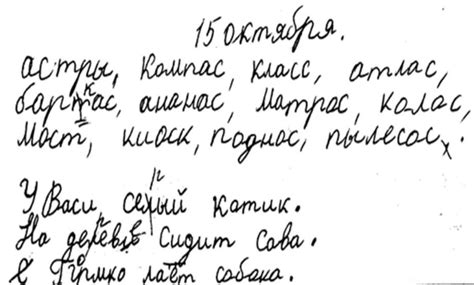 15 октября.
астры, компас, класс, атлас,
баркас, ананас, матрас, колас,
мост, киоск, поднос, пылесос.
У Васи серый котик.
На дереве сидит сова.
Громко лает собака.